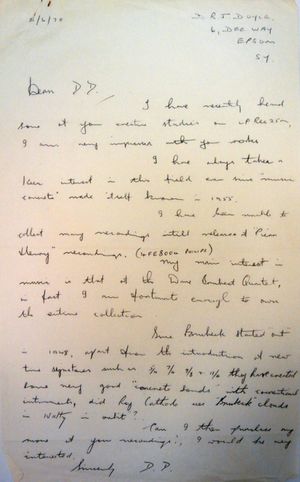 J. R. J. DOYLE.
6, DEE WAY
EPSOM
SY.
Dear D.D./
I have recently heard
some of your creative studies on LP REC25M,
I am very impressed with your works
I have always taken a
keen interest in this field ever since "music
concrete" made itself known in 1955.
I have been unable to
collect many recordings until released
recordings.
My main interest in
music is that of the Dave Brubeck Quartet,
in fact I am fortunate enough to own
the entire collection.
Since Brubeck started out
in 1948, apart from the introduction of new
time signatures such as 5/4 7/4 9/8 + 11/4 they have created
some very good "concrete sounds" with conventional
instruments, did Ray Cathode use Brubeck clouds
in Waltz in orbit?
Can I then purchase any
more of your recordings?, I would be very
interested.
Sincerely D.D.